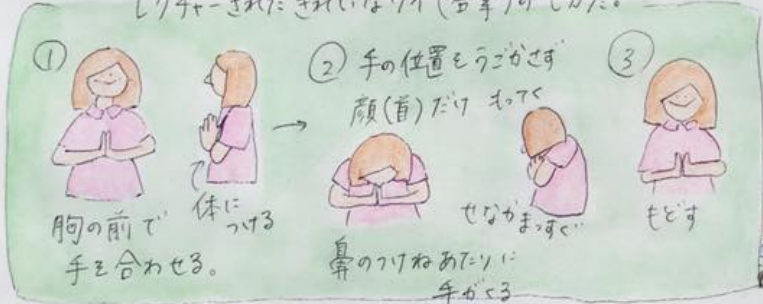 レクチャーされた きれいなワイ(合掌)のしかた。
①
胸の前で
手を合わせる。
体に
つける
→
② 手の位置をうごかさず
顔(首)だけ もってく
せなかまっすぐ
鼻のつけねあたりに
手がくる
③
もどす